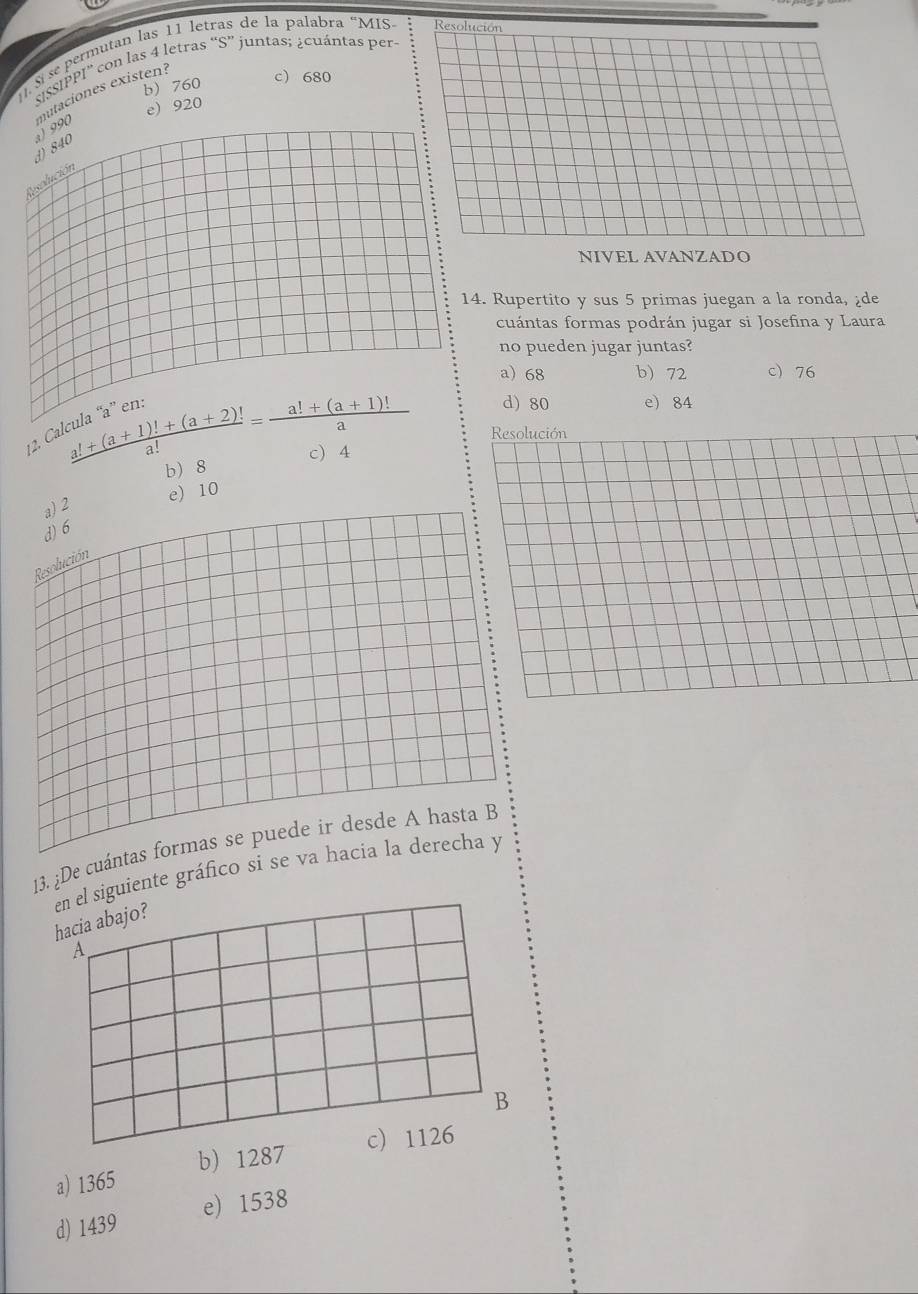 11. Si se permutan las 11 letras de la palabra “MIS-
SISSIPPI” con las 4 letras “S” juntas; ¿cuántas per-
mutaciones existen?
a) 990
b) 760
c) 680
d) 840
e) 920
Resolución
12. Calcula “a” en:
a! + (a + 1)! + (a + 2)! / a! = a! + (a + 1)! / a
a) 2
b) 8
c) 4
d) 6
e) 10
Resolución
13. ¿De cuántas formas se puede ir desde A hasta B
en el siguiente gráfico si se va hacia la derecha y
hacia abajo?
A
B
a) 1365
b) 1287
c) 1126
d) 1439
e) 1538
Resolución
NIVEL AVANZADO
14. Rupertito y sus 5 primas juegan a la ronda, ¿de
cuántas formas podrán jugar si Josefina y Laura
no pueden jugar juntas?
a) 68
b) 72
c) 76
d) 80
e) 84
Resolución